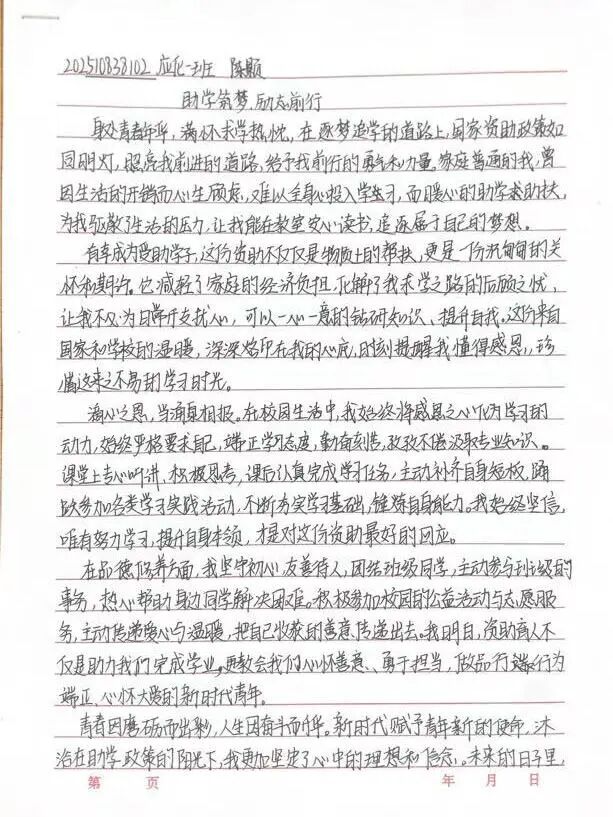 202510838102 应化一班 陈颢
助学筑梦,励志前行
身处青春年华,满怀求学热忱,在逐梦追学的道路上,国家资助政策如
同明灯,照亮我前进的道路,给予我前行的勇气和力量。家庭普通的我,曾
因生活的开销而心生顾虑,难以全身心投入学习,而暖心的助学求助扶,
为我驱散了生活的压力,让我能在教室安心读书,追逐属于自己的梦想。
有幸成为受助学子,这份资助不仅仅是物质上的帮扶,更是一份沉甸甸的关
怀和期许。它减轻了家庭的经济负担,化解了我求学之路的后顾之忧,
让我不必为日常开支扰心,可以一心一意的钻研知识、提升自我。这份来自
国家和学校的温暖,深深烙印在我的心底,时刻提醒我懂得感恩,珍
惜这来之不易的学习时光。
滴水之恩,当涌泉相报。在校园生活中,我始终将感恩之心化为学习的
动力,始终严格要求自己,端正学习态度,勤奋刻苦,孜孜不倦汲取专业知识。
课堂上专心听讲、积极思考,课后认真完成学习任务,主动补齐自身短板,踊
跃参加各类学习实践活动,不断夯实学习基础,锤炼自身能力。我始终坚信,
唯有努力学习,提升自身本领,才是对这份资助最好的回应。
在品德修养方面,我坚守初心,友善待人,团结班级同学,主动参与班级的
事务,热心帮助身边同学解决困难。积极参加校园的公益活动与志愿服
务,主动传递爱心与温暖,把自己收获的善意传递出去。我明白,资助育人不
仅是助力我们完成学业,更教会我们心怀善意、勇于担当,做品行端行为
端正、心怀大爱的新时代青年。
青春因磨砺而出彩,人生因奋斗而升华。新时代赋予青年新的使命,沐
浴在助学政策的阳光下,我更加坚定了心中的理想和信念。未来的日子里,
第 页 年 月 日